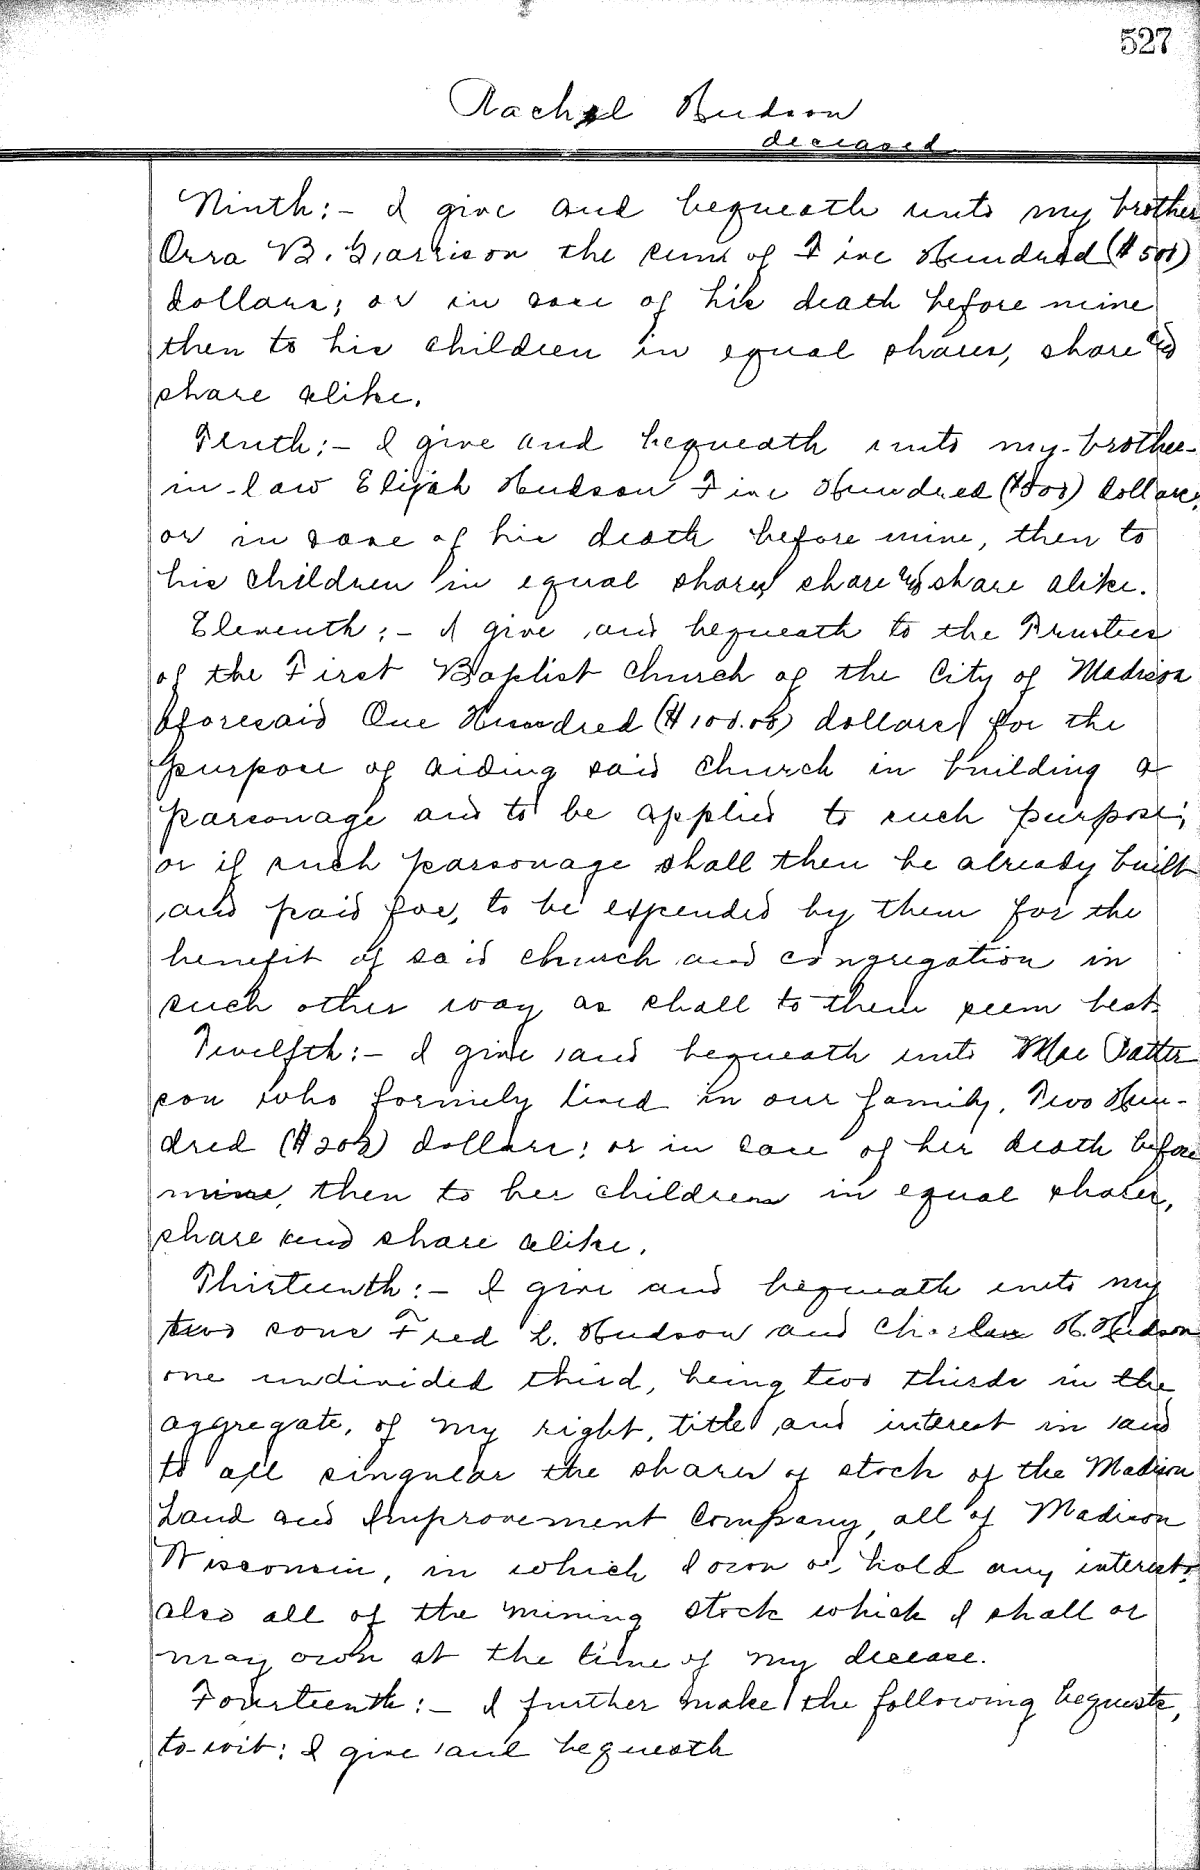 527
Rachel Hudson
deceased
Ninth:- I give and bequeath unto my brother
Orra B. Garrison the sum of Five Hundred ($500)
dollars; or in case of his death before mine
then to his children in equal shares, share and
share alike.
Tenth:- I give and bequeath unto my brother-
in-law Elijah Hudson Five Hundred ($500) dollars,
or in case of his death before mine, then to
his children in equal shares share and share alike.
Eleventh:- I give and bequeath to the Trustees
of the First Baptist Church of the City of Madison
aforesaid One Hundred ($100.00) dollars for the
purpose of aiding said church in building a
parsonage and to be applied to such purpose;
or if such parsonage shall then be already built
and paid for, to be expended by them for the
benefit of said church and congregation in
such other way as shall to them seem best.
Twelfth:- I give and bequeath unto Mae Patter
son who formily lived in our family, Two Hun-
dred ($200) dollars; or in case of her death before
mine, then to her children in equal shares,
share and share alike.
Thirteenth:- I give and bequeath unto my
two sons Fred L. Hudson and Charles H. Hudson
one undivided third, being two thirds in the
aggregate, of my right, title and interest in and
to all singular the shares of stock of the Madison
Land and Improvement Company, all of Madison
Wisconsin, in which I own or hold any interest;
also all of the mining stock which I shall or
may own at the time of my decease.
Fourteenth:- I further make the following bequests,
to-wit: I give and bequeath